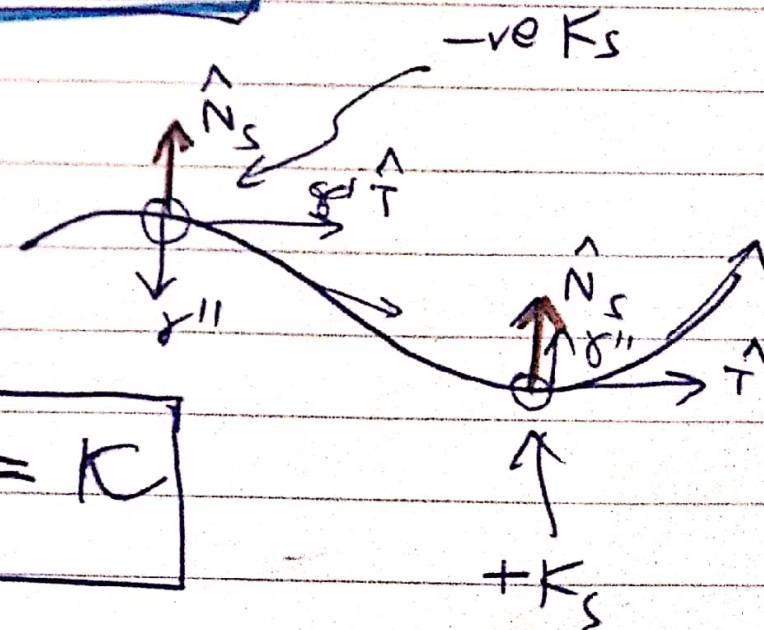 -ve Ks
N̂s
T̂
γ''
N̂s
γ''
T̂
= K
+Ks